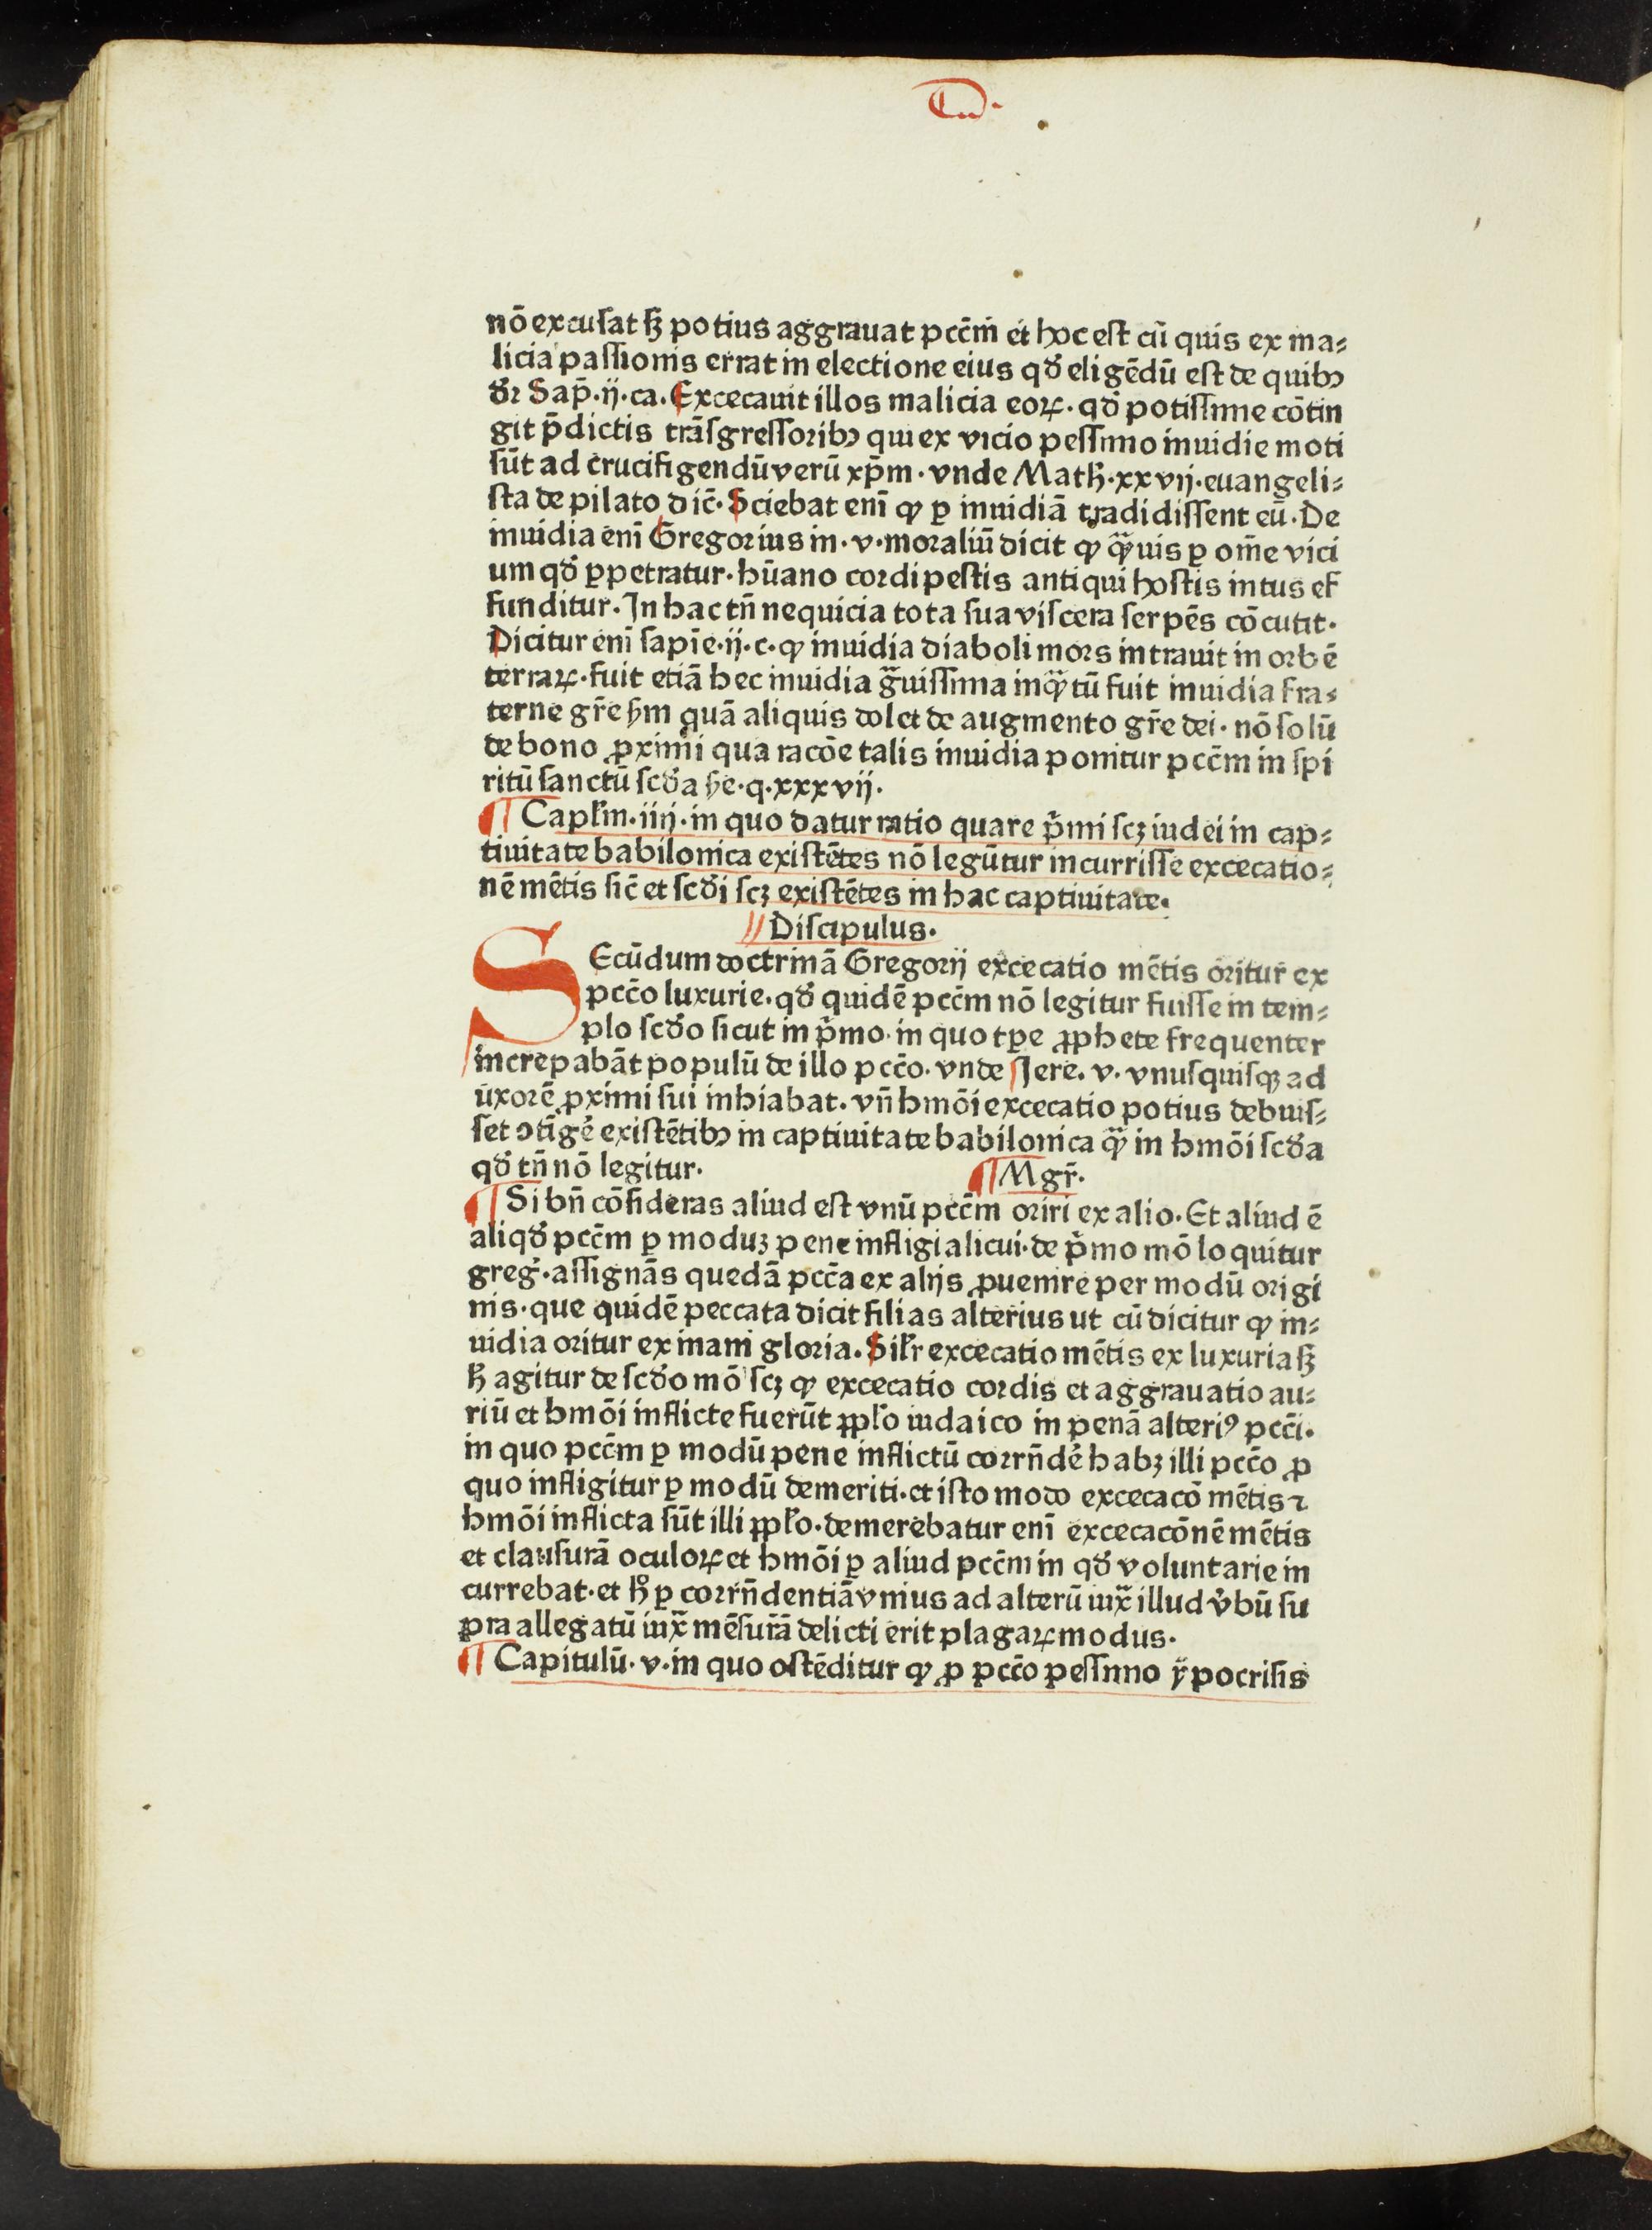 nō excusat sꝫ potius aggrauat pcc̄m et hoc est cū quis ex ma⸗
licia passionis errat in electione eius qđ eligēdū est de quibꝰ
dꝛ Sap̄·ij·ca. Excecauit illos malicia eoꝝ·qđ potissime cōtin
git p̄dictis trāsgressoribꝰ qui ex vicio pessimo inuidie moti
sūt ad crucifigendū verū xp̄m·vnde Math·xxvij·euangeli⸗
sta de pilato dic̄·Sciebat enī ꝙ ꝑ inuidiā tradidissent eū·De
inuidia enī Gregorius in·v·moraliū dicit ꝙ qᷓuis ꝑ om̄e vici
um qđ ꝑpetratur·hūano cordi pestis antiqui hostis intus ef
funditur. In hac tn̄ nequicia tota sua viscera serpēs cōcutit·
Dicitur enī sapīe·ij·c·ꝙ inuidia diaboli mors intrauit in orbē
terraꝝ·fuit etiā hec inuidia gᷓuissima inqᷓtū fuit inuidia fra⸗
terne gr̄e ẜm quā aliquis dolet de augmento gr̄e dei·nō solū
de bono ꝓximi qua racōe talis inuidia ponitur pcc̄m in spi
ritū sanctū scđa ẜe·q·xxxvij·
¶ Capl̄m·iiij·in quo datur ratio quare p̄mi scꝫ iudei in cap⸗
tiuitate babilonica existētes nō legūtur incurrisse excecatio⸗
nē mētis sic̄ et scđi scꝫ existētes in hac captiuitate·
Discipulus·
SEcūdum doctrinā Gregorij excecatio mētis oritur ex
pcc̄o luxurie·qđ quidē pcc̄m nō legitur fuisse in tem⸗
plo scđo sicut in p̄mo·in quo tꝑe ꝓphete frequenter
increpabāt populū de illo pcc̄o·vnde Jere·v·vnusquisqꝫ ad
uxorē ꝓximi sui inhiabat·vn̄ hmōi excecatio potius debuis⸗
set ↄtīge̓ existētibꝰ in captiuitate babilonica qᷓ in hmōi scđa
qđ tn̄ nō legitur.
¶ Mgr̄·
¶ Si bn̄ cōsideras aliud est vnū pcc̄m oriri ex alio·Et aliud ē
aliqđ pcc̄m ꝑ moduꝫ pene infligi alicui·de p̄mo mō loquitur
greg̓·assignās quedā pcc̄a ex alijs ꝓuenire per modū origi
nis·que quidē peccata dicit filias alterius ut cū dicitur ꝙ in⸗
uidia oritur ex inani gloria·Sil̄r excecatio mētis ex luxuria sꝫ
hꝫ agitur de scđo mō scꝫ ꝙ excecatio cordis et aggrauatio au⸗
riū et hmōi inflicte fuerūt ꝓpl̄o iudaico in penā alteriꝰ pcc̄i·
in quo pcc̄m ꝑ modū pene inflictū corrn̄de̓ habꝫ illi pcc̄o ꝓ
quo infligitur ꝑ modū demeriti·et isto modo excecacō mētis ⁊
hmōi inflicta sūt illi ꝓpl̄o·demerebatur enī excecacōnē mētis
et clausurā oculoꝝ et hmōi ꝑ aliud pcc̄m in qđ voluntarie in
currebat·et hͦ ꝑ corrn̄dentiā vnius ad alterū iuxᷓ illud v̓bū su
pra allegatū iuxᷓ mēsurā delicti erit plagaꝝ modus·
¶ Capitulū·v·in quo ostēditur ꝙ ꝓ pcc̄o pessimo ẏpocrisis